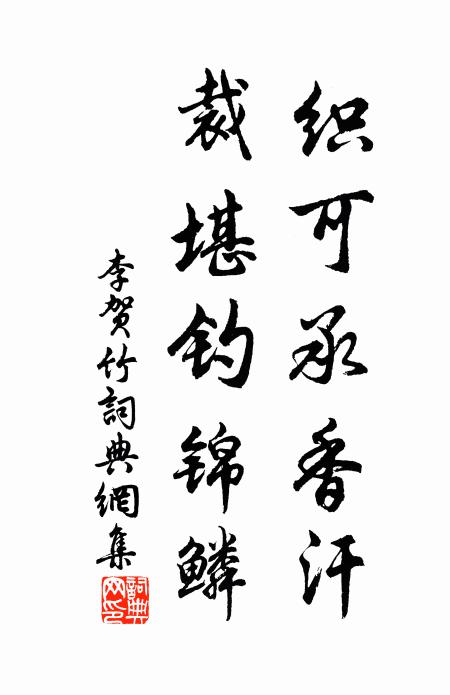 织可承香汗
裁堪钓锦鳞
李贺竹詞典網集